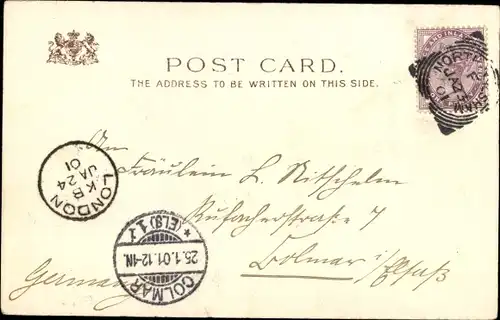 POST CARD.
THE ADDRESS TO BE WRITTEN ON THIS SIDE.
LONDON
K B
JA 24
01
An
Fräulein L. Nitschelm
Rufacherstraße 7
Colmar i/Elsaß
Germany
COLMAR
25.1.01.12-1N.
* (ELS) 1. 1